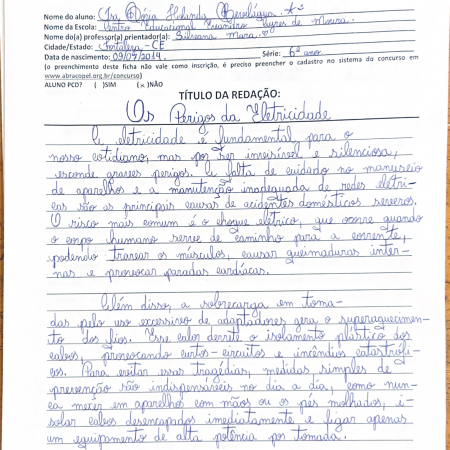 Nome do aluno: Ira Dónia Holanda Bevilágua
Nome da Escola: Centro Educacional Leandro Ayres de Moura.
Nome do(a) professor(a) orientador(a): Silviana Mara.
Cidade/Estado: Fortaleza - CE
Data de nascimento: 09/07/2014. Série: 6º ano.
(o preenchimento deste ficha não vale como inscrição, é preciso preencher o cadastro no sistema do concurso em
www.abracopel.org.br/concurso)
ALUNO PCD? ( )SIM (x)NÃO
TÍTULO DA REDAÇÃO:
Os Perigos da Eletricidade
A eletricidade é fundamental para o
nosso cotidiano, mas por ser invisível e silenciosa,
esconde graves perigos. A falta de cuidado no manuseio
de aparelhos e a manutenção inadequada de redes elétri-
cas são as principais causas de acidentes domésticos severos.
O risco mais comum é o choque elétrico, que ocorre quando
o corpo humano serve de caminho para a corrente,
podendo travar os músculos, causar queimaduras inter-
nas e provocar paradas cardíacas.
Além disso, a sobrecarga em toma-
das pelo uso excessivo de adaptadores gera o superaquecimen-
to dos fios. Esse calor derrete o isolamento plástico dos
cabos, provocando curtos-circuitos e incêndios catastrófi-
cos. Para evitar essas tragédias, medidas simples de
prevenção são indispensáveis no dia a dia, como nun-
ca mexer em aparelhos com mãos ou os pés molhados, i-
solar cabos desencapados imediatamente e ligar apenas
um equipamento de alta potência por tomada.